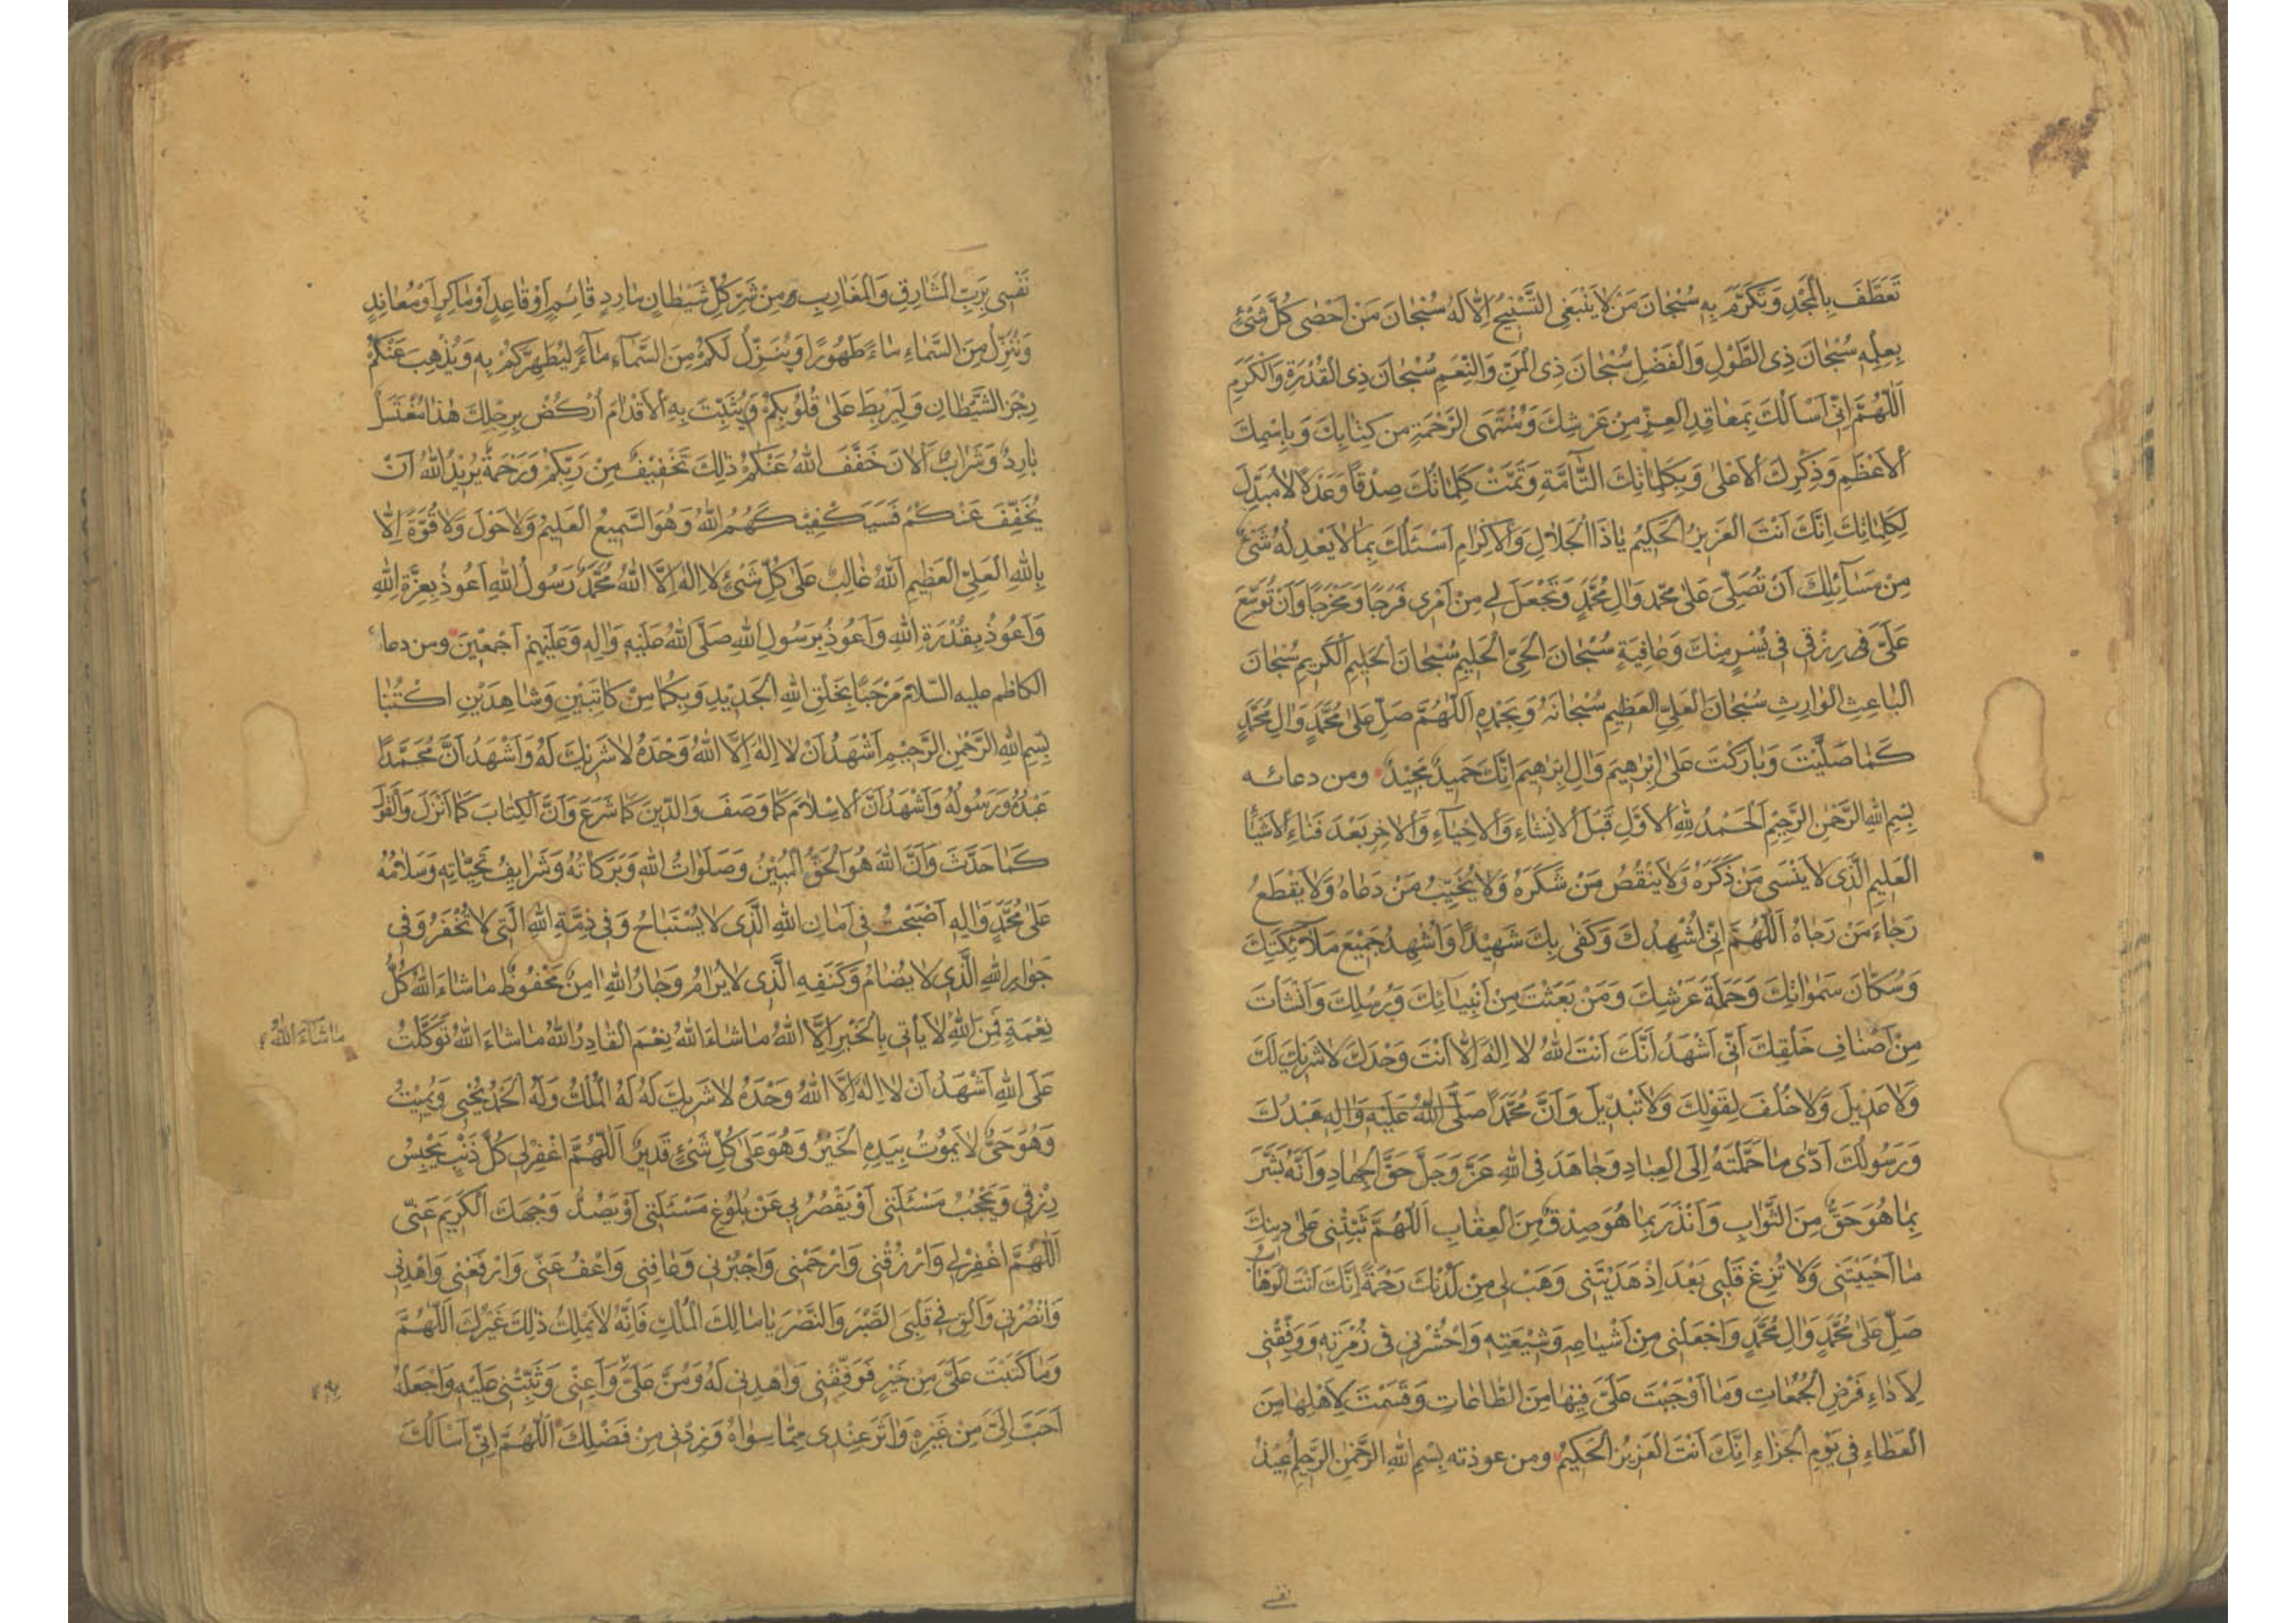 تَعَطَّفَ بِالْمَجْدِ وَتَكَرَّمَ بِهِ سُبْحَانَ مَنْ لَا يَنْبَغِى التَّسْبِيحُ اِلَّا لَهُ سُبْحَانَ مَنْ اَحْصٰى كُلَّ شَيْءٍ
بِعِلْمِهِ سُبْحَانَ ذِى الطَّوْلِ وَالْفَضْلِ سُبْحَانَ ذِى الْمَنِّ وَالنِّعَمِ سُبْحَانَ ذِى الْقُدْرَةِ وَالْكَرَمِ
اَللّٰهُمَّ اِنِّى اَسْاَلُكَ بِمَعَاقِدِ الْعِزِّ مِنْ عَرْشِكَ وَمُنْتَهَى الرَّحْمَةِ مِنْ كِتَابِكَ وَبِاِسْمِكَ
الْاَعْظَمِ وَذِكْرِكَ الْاَعْلٰى وَبِكَلِمَاتِكَ التَّامَّةِ وَتَمَّتْ كَلِمَاتُكَ صِدْقًا وَعَدْلًا لَا مُبَدِّلَ
لِكَلِمَاتِكَ اِنَّكَ اَنْتَ الْعَزِيزُ الْحَكِيمُ يَا ذَا الْجَلَالِ وَالْاِكْرَامِ اَسْئَلُكَ بِمَا لَا يَعْدِلُهُ شَيْءٌ
مِنْ مَسَائِلِكَ اَنْ تُصَلِّىَ عَلٰى مُحَمَّدٍ وَاٰلِ مُحَمَّدٍ وَتَجْعَلَ لِى مِنْ اَمْرِى فَرَجًا وَمَخْرَجًا وَاَنْ تُوَسِّعَ
عَلَىَّ فِى رِزْقِى فِى يُسْرٍ مِنْكَ وَعَافِيَةٍ سُبْحَانَ الْحَىِّ الْحَلِيمِ سُبْحَانَ الْحَلِيمِ الْكَرِيمِ سُبْحَانَ
الْبَاعِثِ الْوَارِثِ سُبْحَانَ الْعَلِىِّ الْعَظِيمِ سُبْحَانَهُ وَبِحَمْدِهِ اَللّٰهُمَّ صَلِّ عَلٰى مُحَمَّدٍ وَاٰلِ مُحَمَّدٍ
كَمَا صَلَّيْتَ وَبَارَكْتَ عَلٰى اِبْرٰهِيمَ وَاٰلِ اِبْرٰهِيمَ اِنَّكَ حَمِيدٌ مَجِيدٌ ومن دعائه
بِسْمِ اللهِ الرَّحْمٰنِ الرَّحِيمِ اَلْحَمْدُ لِلّٰهِ الْاَوَّلِ قَبْلَ الْاِنْشَاءِ وَالْاِحْيَاءِ وَالْاٰخِرِ بَعْدَ فَنَاءِ الْاَشْيَاءِ
الْعَلِيمِ الَّذِى لَا يَنْسٰى مَنْ ذَكَرَهُ وَلَا يَنْقُصُ مَنْ شَكَرَهُ وَلَا يُخَيِّبُ مَنْ دَعَاهُ وَلَا يَقْطَعُ
رَجَاءَ مَنْ رَجَاهُ اَللّٰهُمَّ اِنِّى اُشْهِدُكَ وَكَفٰى بِكَ شَهِيدًا وَاُشْهِدُ جَمِيعَ مَلَائِكَتِكَ
وَسُكَّانَ سَمٰوَاتِكَ وَحَمَلَةَ عَرْشِكَ وَمَنْ بَعَثْتَ مِنْ اَنْبِيَائِكَ وَرُسُلِكَ وَاَنْشَأْتَ
مِنْ اَصْنَافِ خَلْقِكَ اَنِّى اَشْهَدُ اَنَّكَ اَنْتَ اللهُ لَا اِلٰهَ اِلَّا اَنْتَ وَحْدَكَ لَا شَرِيكَ لَكَ
وَلَا عَدِيلَ وَلَا خُلْفَ لِقَوْلِكَ وَلَا تَبْدِيلَ وَاَنَّ مُحَمَّدًا صَلَّى اللهُ عَلَيْهِ وَاٰلِهِ عَبْدُكَ
وَرَسُولُكَ اَدّٰى مَا حَمَّلْتَهُ اِلَى الْعِبَادِ وَجَاهَدَ فِى اللهِ عَزَّ وَجَلَّ حَقَّ الْجِهَادِ وَاَنَّهُ بَشَّرَ
بِمَا هُوَ حَقٌّ مِنَ الثَّوَابِ وَاَنْذَرَ بِمَا هُوَ صِدْقٌ مِنَ الْعِقَابِ اَللّٰهُمَّ ثَبِّتْنِى عَلٰى دِينِكَ
مَا اَحْيَيْتَنِى وَلَا تُزِغْ قَلْبِى بَعْدَ اِذْ هَدَيْتَنِى وَهَبْ لِى مِنْ لَدُنْكَ رَحْمَةً اِنَّكَ اَنْتَ الْوَهَّابُ
صَلِّ عَلٰى مُحَمَّدٍ وَاٰلِ مُحَمَّدٍ وَاجْعَلْنِى مِنْ اَشْيَاعِهِ وَشِيعَتِهِ وَاحْشُرْنِى فِى زُمْرَتِهِ وَوَفِّقْنِى
لِاَدَاءِ فَرْضِ الْجُمُعَاتِ وَمَا اَوْجَبْتَ عَلَىَّ فِيهَا مِنَ الطَّاعَاتِ وَقَسَمْتَ لِاَهْلِهَا مِنَ
الْعَطَاءِ فِى يَوْمِ الْجَزَاءِ اِنَّكَ اَنْتَ الْعَزِيزُ الْحَكِيمُ ومن عوذته بِسْمِ اللهِ الرَّحْمٰنِ الرَّحِيمِ اُعِيذُ
نفسى
نَفْسِى بِرَبِّ الْمَشَارِقِ وَالْمَغَارِبِ وَمِنْ شَرِّ كُلِّ شَيْطَانٍ مَارِدٍ قَائِمٍ اَوْ قَاعِدٍ اَوْ مَاكِرٍ اَوْ مُعَانِدٍ
وَنُنَزِّلُ مِنَ السَّمَاءِ مَاءً طَهُورًا وَيُنَزِّلُ لَكُمْ مِنَ السَّمَاءِ مَاءً لِيُطَهِّرَكُمْ بِهِ وَيُذْهِبَ عَنْكُمْ
رِجْزَ الشَّيْطَانِ وَلِيَرْبِطَ عَلٰى قُلُوبِكُمْ وَيُثَبِّتَ بِهِ الْاَقْدَامَ اُرْكُضْ بِرِجْلِكَ هٰذَا مُغْتَسَلٌ
بَارِدٌ وَشَرَابٌ اَلْاٰنَ خَفَّفَ اللهُ عَنْكُمْ ذٰلِكَ تَخْفِيفٌ مِنْ رَبِّكُمْ وَرَحْمَةٌ يُرِيدُ اللهُ اَنْ
يُخَفِّفَ عَنْكُمْ فَسَيَكْفِيكَهُمُ اللهُ وَهُوَ السَّمِيعُ الْعَلِيمُ وَلَا حَوْلَ وَلَا قُوَّةَ اِلَّا
بِاللهِ الْعَلِىِّ الْعَظِيمِ اَللهُ غَالِبٌ عَلٰى كُلِّ شَيْءٍ لَا اِلٰهَ اِلَّا اللهُ مُحَمَّدٌ رَسُولُ اللهِ اَعُوذُ بِعِزَّةِ اللهِ
وَاَعُوذُ بِقُدْرَةِ اللهِ وَاَعُوذُ بِرَسُولِ اللهِ صَلَّى اللهُ عَلَيْهِ وَاٰلِهِ وَعَلَيْهِمْ اَجْمَعِينَ ومن دعاء
الكاظم عليه السّلام مَرْحَبًا بِخَلْقِ اللهِ الْجَدِيدِ وَبِكُمَا مِنْ كَاتِبَيْنِ وَشَاهِدَيْنِ اكْتُبَا
بِسْمِ اللهِ الرَّحْمٰنِ الرَّحِيمِ اَشْهَدُ اَنْ لَا اِلٰهَ اِلَّا اللهُ وَحْدَهُ لَا شَرِيكَ لَهُ وَاَشْهَدُ اَنَّ مُحَمَّدًا
عَبْدُهُ وَرَسُولُهُ وَاَشْهَدُ اَنَّ الْاِسْلَامَ كَمَا وَصَفَ وَالدِّينَ كَمَا شَرَعَ وَاَنَّ الْكِتَابَ كَمَا اَنْزَلَ وَالْقَوْلَ
كَمَا حَدَّثَ وَاَنَّ اللهَ هُوَ الْحَقُّ الْمُبِينُ وَصَلَوَاتُ اللهِ وَبَرَكَاتُهُ وَشَرَايِفُ تَحِيَّاتِهِ وَسَلَامُهُ
عَلٰى مُحَمَّدٍ وَاٰلِهِ اَصْبَحْتُ فِى اَمَانِ اللهِ الَّذِى لَا يُسْتَبَاحُ وَفِى ذِمَّةِ اللهِ الَّتِى لَا تُخْفَرُ وَفِى
جِوَارِ اللهِ الَّذِى لَا يُضَامُ وَكَنَفِهِ الَّذِى لَا يُرَامُ وَجَارُ اللهِ اٰمِنٌ مَحْفُوظٌ مَا شَاءَ اللهُ كُلُّ
نِعْمَةٍ فَمِنَ اللهِ لَا يَأْتِى بِالْخَيْرِ اِلَّا اللهُ مَا شَاءَ اللهُ نِعْمَ الْقَادِرُ اللهُ مَا شَاءَ اللهُ تَوَكَّلْتُ
مَا شَاءَ اللهُ
عَلَى اللهِ اَشْهَدُ اَنْ لَا اِلٰهَ اِلَّا اللهُ وَحْدَهُ لَا شَرِيكَ لَهُ لَهُ الْمُلْكُ وَلَهُ الْحَمْدُ يُحْيِى وَيُمِيتُ
وَهُوَ حَىٌّ لَا يَمُوتُ بِيَدِهِ الْخَيْرُ وَهُوَ عَلٰى كُلِّ شَيْءٍ قَدِيرٌ اَللّٰهُمَّ اغْفِرْ لِى كُلَّ ذَنْبٍ يَحْبِسُ
رِزْقِى وَيَحْجُبُ مَسْئَلَتِى اَوْ يَقْصُرُ بِى عَنْ بُلُوغِ مَسْئَلَتِى اَوْ يَصُدُّ وَجْهَكَ الْكَرِيمَ عَنِّى
اَللّٰهُمَّ اغْفِرْ لِى وَارْزُقْنِى وَارْحَمْنِى وَاجْبُرْنِى وَعَافِنِى وَاعْفُ عَنِّى وَارْفَعْنِى وَاهْدِنِى
وَانْصُرْنِى وَاَلْقِ فِى قَلْبِىَ الصَّبْرَ وَالنَّصْرَ يَا مَالِكَ الْمُلْكِ فَاِنَّهُ لَا يَمْلِكُ ذٰلِكَ غَيْرُكَ اَللّٰهُمَّ
وَمَا كَتَبْتَ عَلَىَّ مِنْ خَيْرٍ فَوَفِّقْنِى وَاهْدِنِى لَهُ وَمُنَّ عَلَىَّ وَاَعِنِّى وَثَبِّتْنِى عَلَيْهِ وَاجْعَلْهُ
بِهِ
اَحَبَّ اِلَىَّ مِنْ غَيْرِهِ وَاٰثَرَ عِنْدِى مِمَّا سِوَاهُ وَزِدْنِى مِنْ فَضْلِكَ اَللّٰهُمَّ اِنِّى اَسْاَلُكَ